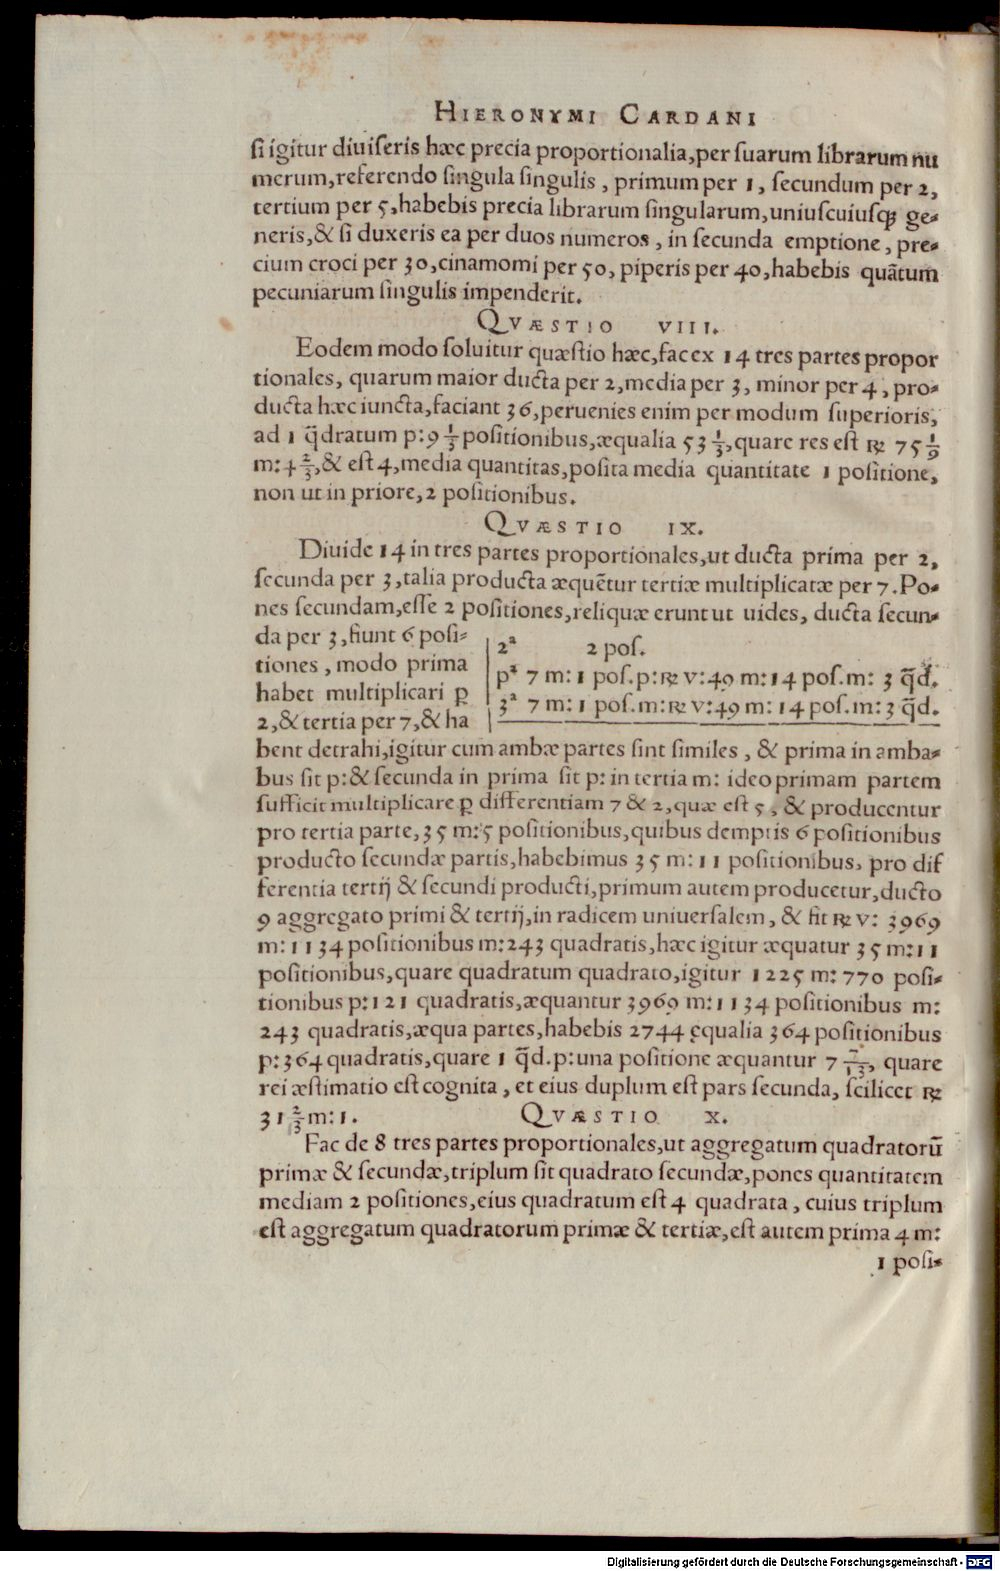 HIERONYMI CARDANI
si igitur diuiseris hæc precia proportionalia, per suarum librarum nu
merum, referendo singula singulis, primum per 1, secundum per 2,
tertium per 5, habebis precia librarum singularum, uniuscuiusq; ge-
neris, & si duxeris ea per duos numeros, in secunda emptione, pre-
cium croci per 30, cinamomi per 50, piperis per 40, habebis quãtum
pecuniarum singulis impenderit.
QVÆSTIO VIII.
Eodem modo soluitur quæstio hæc, fac ex 14 tres partes propor
tionales, quarum maior ducta per 2, media per 3, minor per 4, pro-
ducta hæc iuncta, faciant 36, peruenies enim per modum superioris,
ad 1 q̃dratum p: 9 1/3 positionibus, æqualia 53 1/3, quare res est ℞ 75 1/9
m: 4 2/3, & est 4, media quantitas, posita media quantitate 1 positione,
non ut in priore, 2 positionibus.
QVÆSTIO IX.
Diuide 14 in tres partes proportionales, ut ducta prima per 2,
secunda per 3, talia producta æquẽtur tertiæ multiplicatæ per 7. Po-
nes secundam, esse 2 positiones, reliquæ erunt ut uides, ducta secun-
da per 3, fiunt 6 posi-
tiones, modo prima
habet multiplicari ꝑ
2, & tertia per 7, & ha
2ª 2 pos.
pª 7 m: 1 pos. p: ℞ v: 49 m: 14 pos. m: 3 q̃d.
3ª 7 m: 1 pos. m: ℞ v: 49 m: 14 pos. m: 3 q̃d.
bent detrahi, igitur cum ambæ partes sint similes, & prima in amba-
bus sit p: & secunda in prima sit p: in tertia m: ideo primam partem
sufficit multiplicare ꝑ differentiam 7 & 2, quæ est 5, & producentur
pro tertia parte, 35 m: 5 positionibus, quibus demptis 6 positionibus
producto secundæ partis, habebimus 35 m: 11 positionibus, pro dif
ferentia tertij & secundi producti, primum autem producetur, ducto
9 aggregato primi & tertij, in radicem uniuersalem, & fit ℞ v: 3969
m: 1134 positionibus m: 243 quadratis, hæc igitur æquatur 35 m: 11
positionibus, quare quadratum quadrato, igitur 1225 m: 770 posi-
tionibus p: 121 quadratis, æquantur 3969 m: 1134 positionibus m:
243 quadratis, æqua partes, habebis 2744 ęqualia 364 positionibus
p: 364 quadratis, quare 1 q̃d. p: una positione æquantur 7 7/13, quare
rei æstimatio est cognita, et eius duplum est pars secunda, scilicet ℞
31 2/3 m: 1. QVÆSTIO X.
Fac de 8 tres partes proportionales, ut aggregatum quadratorũ
primæ & secundæ, triplum sit quadrato secundæ, pones quantitatem
mediam 2 positiones, eius quadratum est 4 quadrata, cuius triplum
est aggregatum quadratorum primæ & tertiæ, est autem prima 4 m:
1 posi-
Digitalisierung gefördert durch die Deutsche Forschungsgemeinschaft - DFG